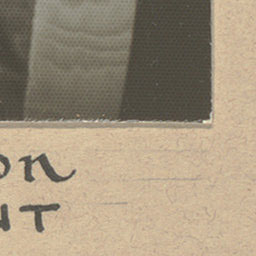 on
NT